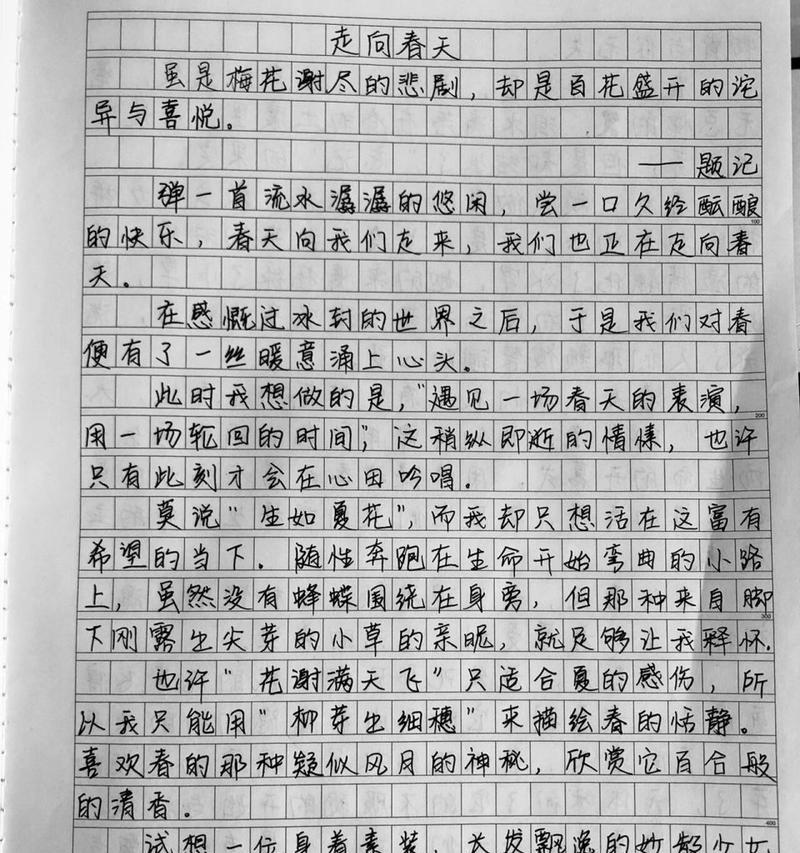 走向春天
虽是梅花谢尽的悲剧，却是百花盛开的诧
异与喜悦。
——题记
弹一首流水潺潺的悠闲，尝一口久经酝酿
的快乐，春天向我们走来，我们也正在走向春
天。
在感慨过冰封的世界之后，于是我们对春
便有了一丝暖意涌上心头。
此时我想做的是，“遇见一场春天的表演，
用一场轮回的时间”，这稍纵即逝的情愫，也许
只有此刻才会在心田吟唱。
莫说“生如夏花”，而我却只想活在这富有
希望的当下。随性奔跑在生命开始弯曲的小路
上，虽然没有蜂蝶围绕在身旁，但那种来自脚
下刚露出尖芽的小草的亲昵，就足够让我释怀.
也许“花谢满天飞”只适合夏的感伤，所
以我只能用“柳芽出细穗”来描绘春的恬静。
喜欢春的那种疑似风月的神秘，欣赏它百合般
的清香。
试想一位身着素装，长发飘逸的妙龄少女
100
200
300
400